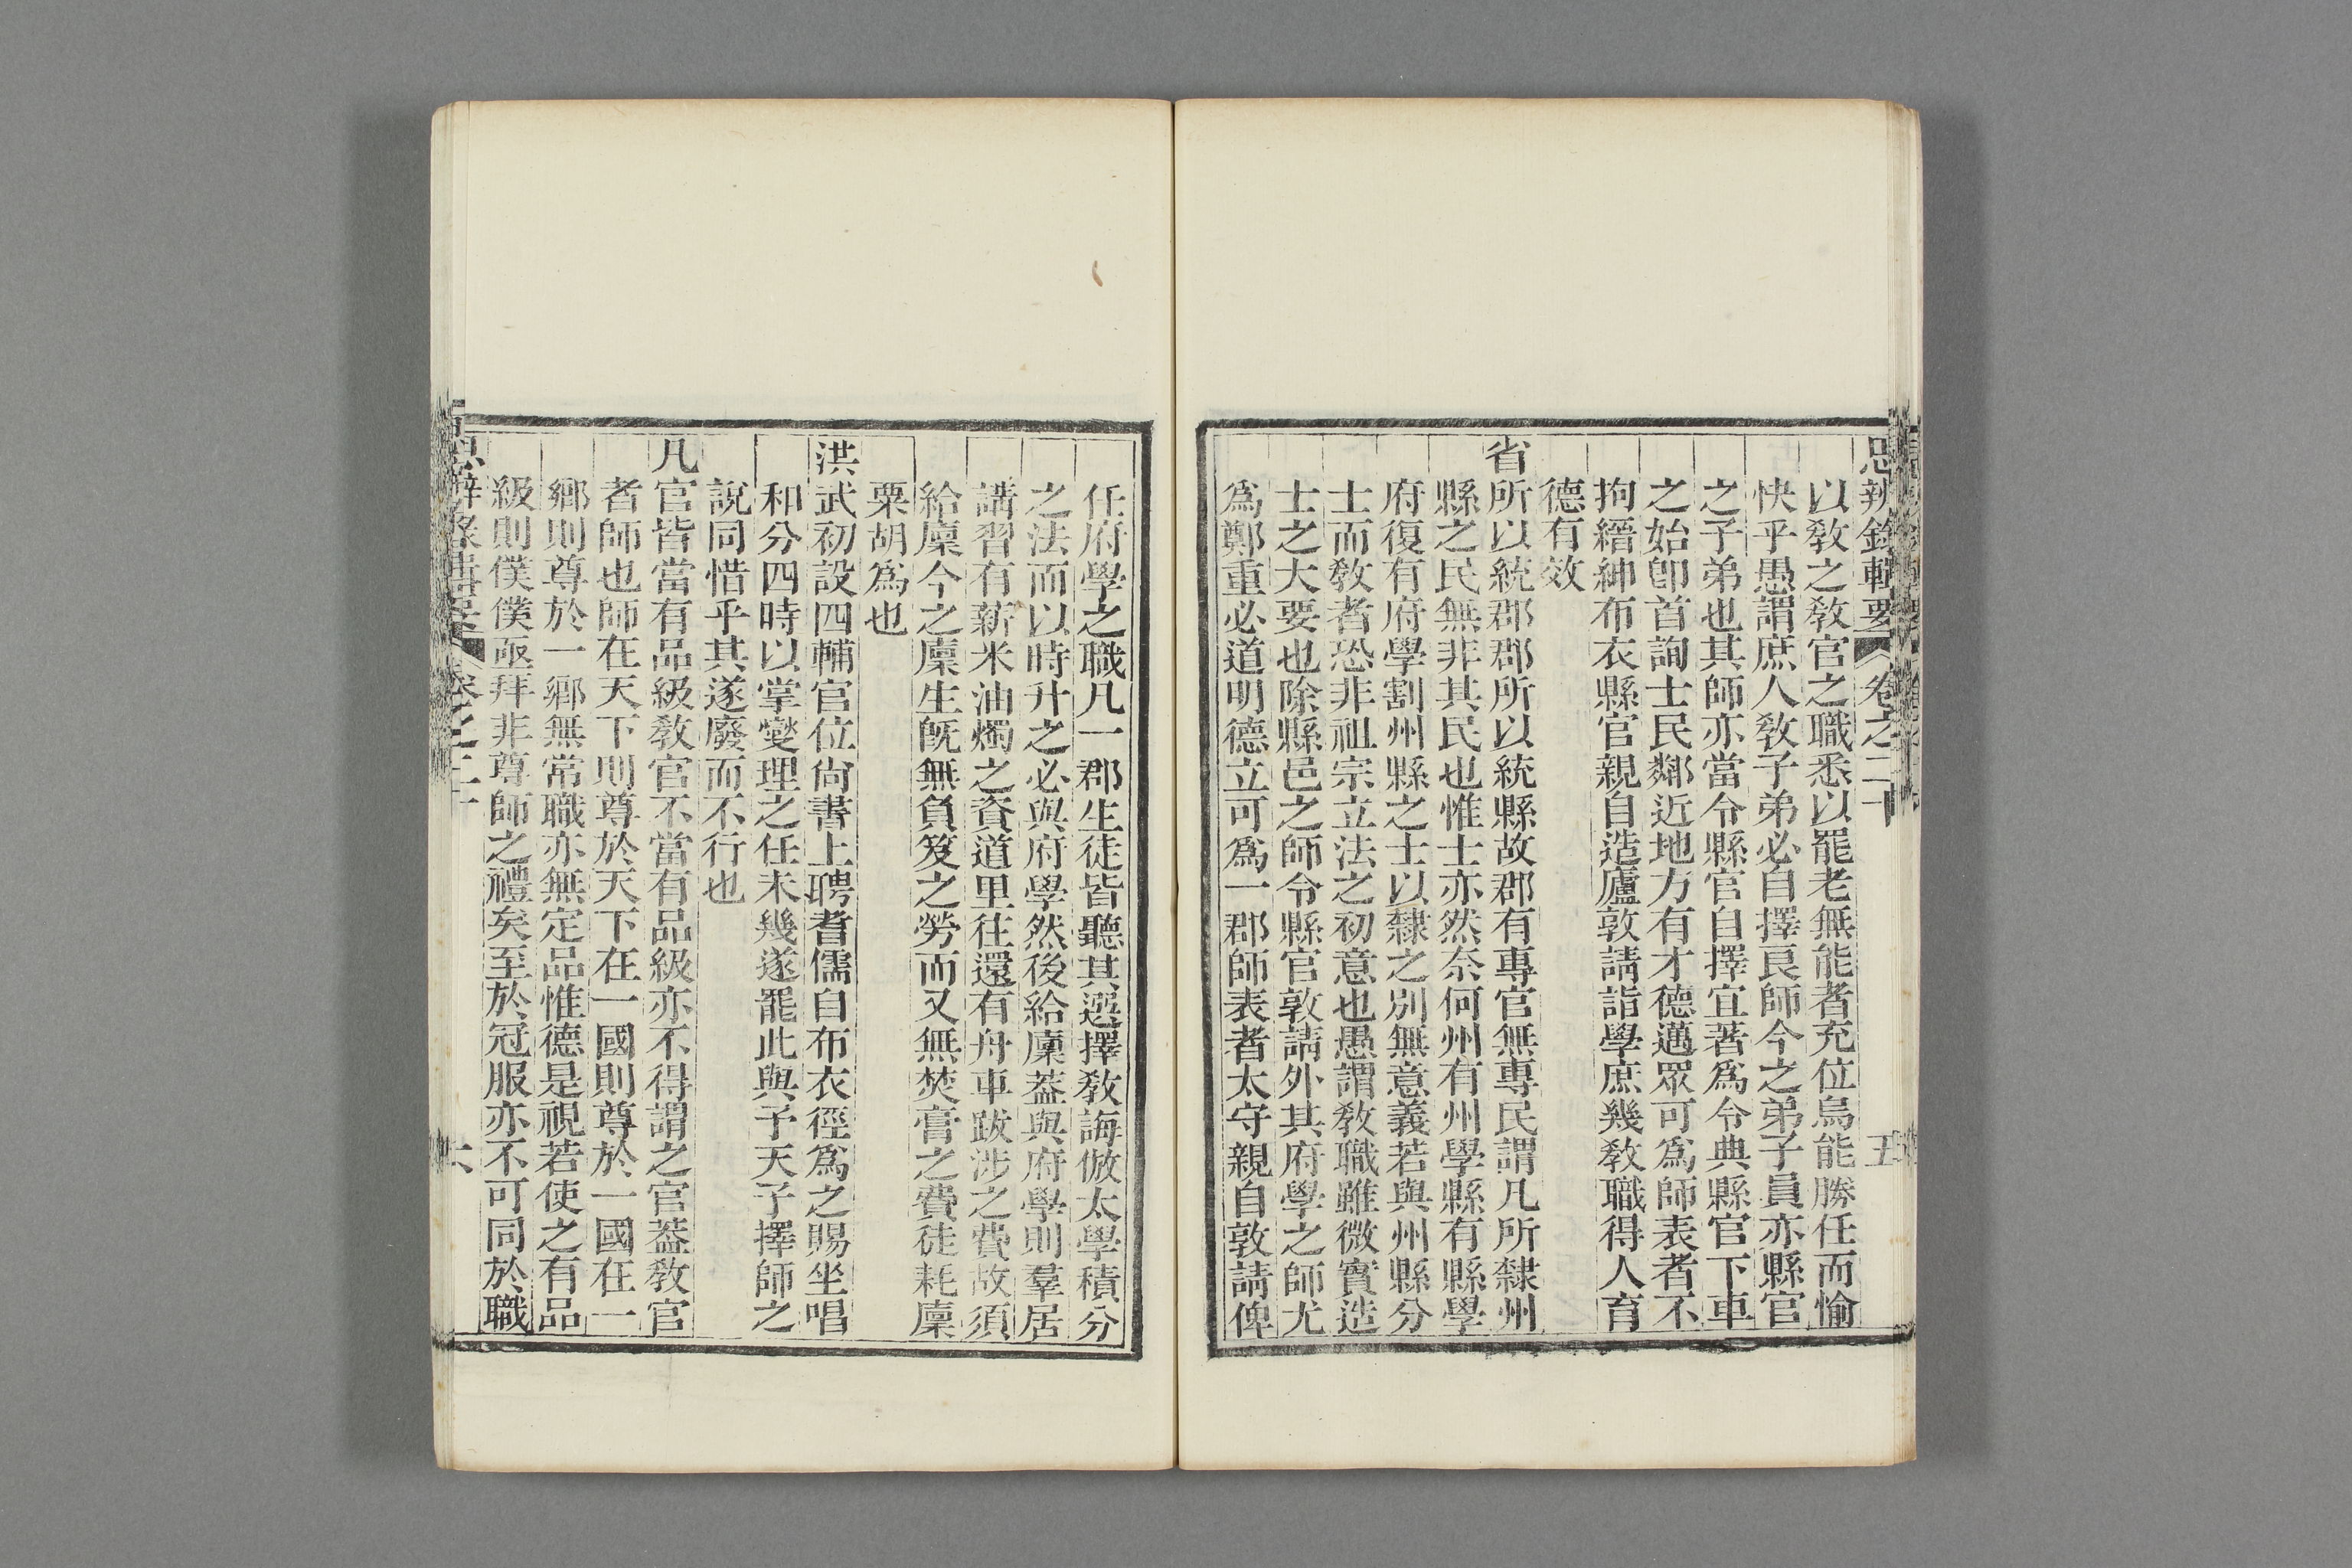 思辨錄輯要 卷之二十 五
以敎之敎官之職悉以罷老無能者充位烏能勝任而愉
快乎愚謂庶人敎子弟必自擇良師今之弟子員亦縣官
之子弟也其師亦當令縣官自擇宜著爲令典縣官下車
之始卽首詢士民鄰近地方有才德邁眾可爲師表者不
拘縉紳布衣縣官親自造廬敦請詣學庶幾敎職得人育
德有效
省所以統郡郡所以統縣故郡有專官無專民謂凡所隸州
縣之民無非其民也惟士亦然奈何州有州學縣有縣學
府復有府學割州縣之士以隸之別無意義若與州縣分
士而敎者恐非祖宗立法之初意也愚謂敎職雖微實造
士之大要也除縣邑之師令縣官敦請外其府學之師尤
爲鄭重必道明德立可爲一郡師表者太守親自敦請俾
任府學之職凡一郡生徒皆聽其選擇敎誨倣太學積分
之法而以時升之必與府學然後給廩葢與府學則羣居
講習有薪米油燭之資道里往還有舟車跋涉之費故須
給廩今之廩生旣無負笈之勞而又無焚膏之費徒耗廩
粟胡爲也
洪武初設四輔官位尙書上聘耆儒自布衣徑爲之賜坐唱
和分四時以掌變理之任未幾遂罷此與予天子擇師之
說同惜乎其遂廢而不行也
凡官皆當有品級敎官不當有品級亦不得謂之官葢敎官
者師也師在天下則尊於天下在一國則尊於一國在一
鄉則尊於一鄉無常職亦無定品惟德是視若使之有品
級則僕僕亟拜非尊師之禮矣至於冠服亦不可同於職
思辨錄輯要 卷之二十 六